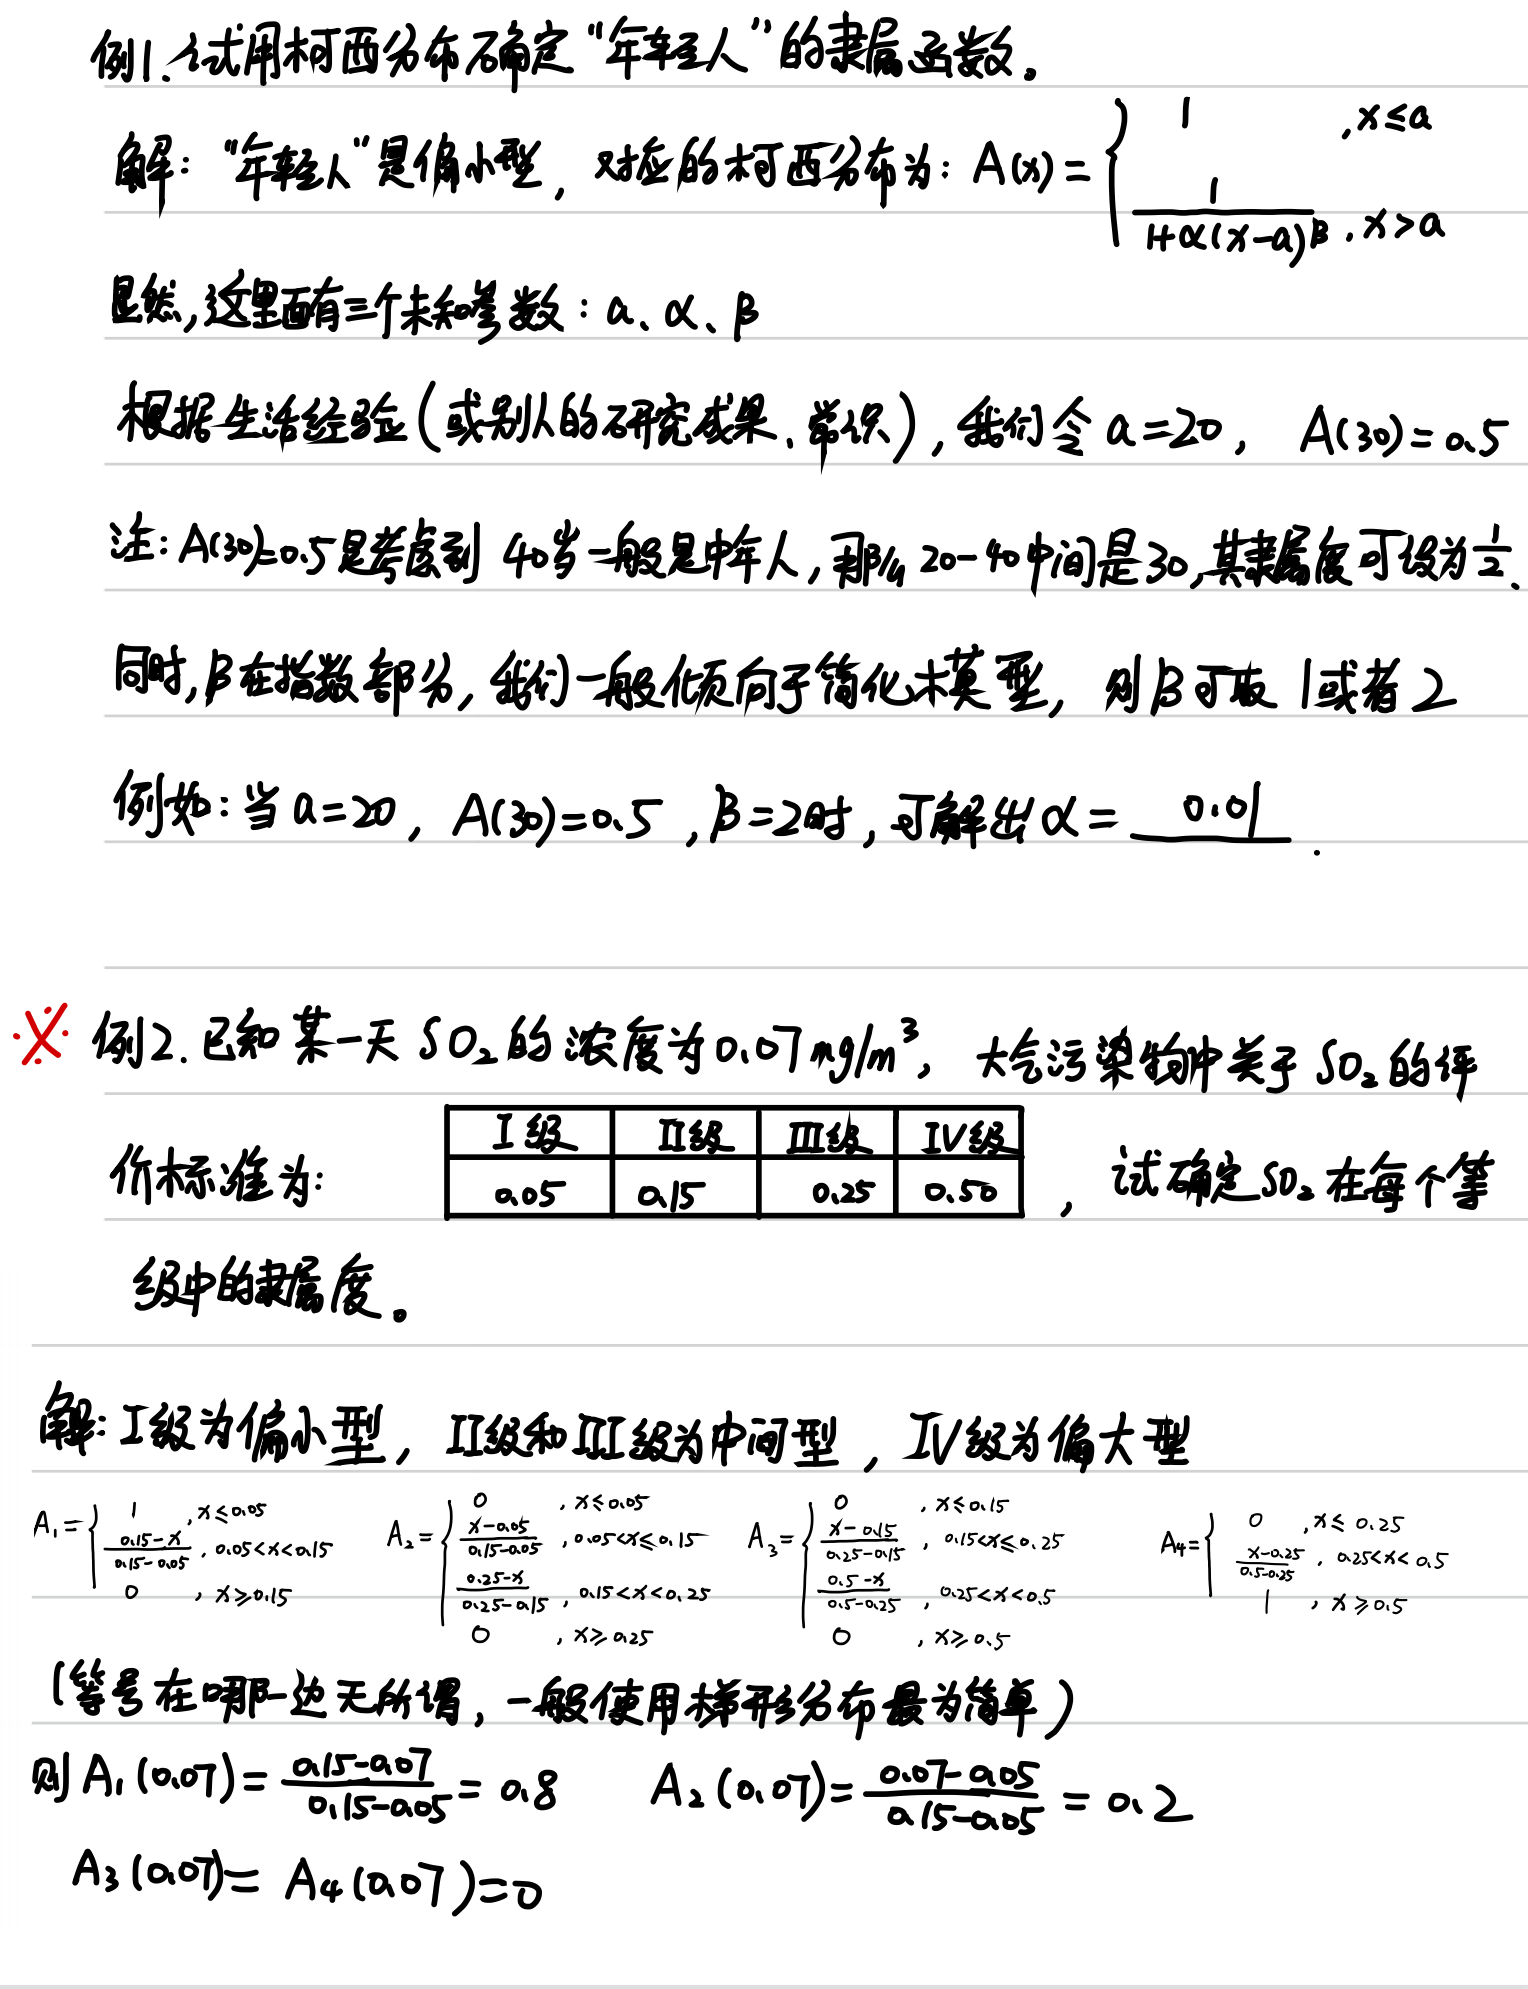 例1. 试用柯西分布确定“年轻人”的隶属函数。
解：“年轻人”是偏小型，对应的柯西分布为：A(x) = { 1 , x≤a
1/(1+α(x-a)^β) , x>a
显然,这里面有三个未知参数：a、α、β
根据生活经验(或别人的研究成果、常识)，我们令 a=20， A(30)=0.5
注：A(30)=0.5是考虑到 40岁一般是中年人，那么 20-40中间是30,其隶属度可设为1/2.
同时,β在指数部分，我们一般倾向于简化模型，则β可取 1或者2
例如：当 a=20，A(30)=0.5，β=2时，可解出α= 0.01 .
※ 例2. 已知某一天 SO₂的浓度为0.07mg/m³，大气污染物中关于SO₂的评
价标准为：
I级 II级 III级 IV级
0.05 0.15 0.25 0.50
，试确定SO₂在每个等
级中的隶属度。
解：I级为偏小型，II级和III级为中间型，IV级为偏大型
A₁= { 1 , x≤0.05
(0.15-x)/(0.15-0.05) , 0.05<x<0.15
0 , x≥0.15
A₂= { 0 , x≤0.05
(x-0.05)/(0.15-0.05) , 0.05<x≤0.15
(0.25-x)/(0.25-0.15) , 0.15<x<0.25
0 , x≥0.25
A₃= { 0 , x≤0.15
(x-0.15)/(0.25-0.15) , 0.15<x≤0.25
(0.5-x)/(0.5-0.25) , 0.25<x<0.5
0 , x≥0.5
A₄= { 0 , x≤0.25
(x-0.25)/(0.5-0.25) , 0.25<x<0.5
1 , x≥0.5
(等号在哪一边无所谓，一般使用梯形分布最为简单)
则 A₁(0.07)= (0.15-0.07)/(0.15-0.05) = 0.8 A₂(0.07)= (0.07-0.05)/(0.15-0.05) = 0.2
A₃(0.07)= A₄(0.07)=0